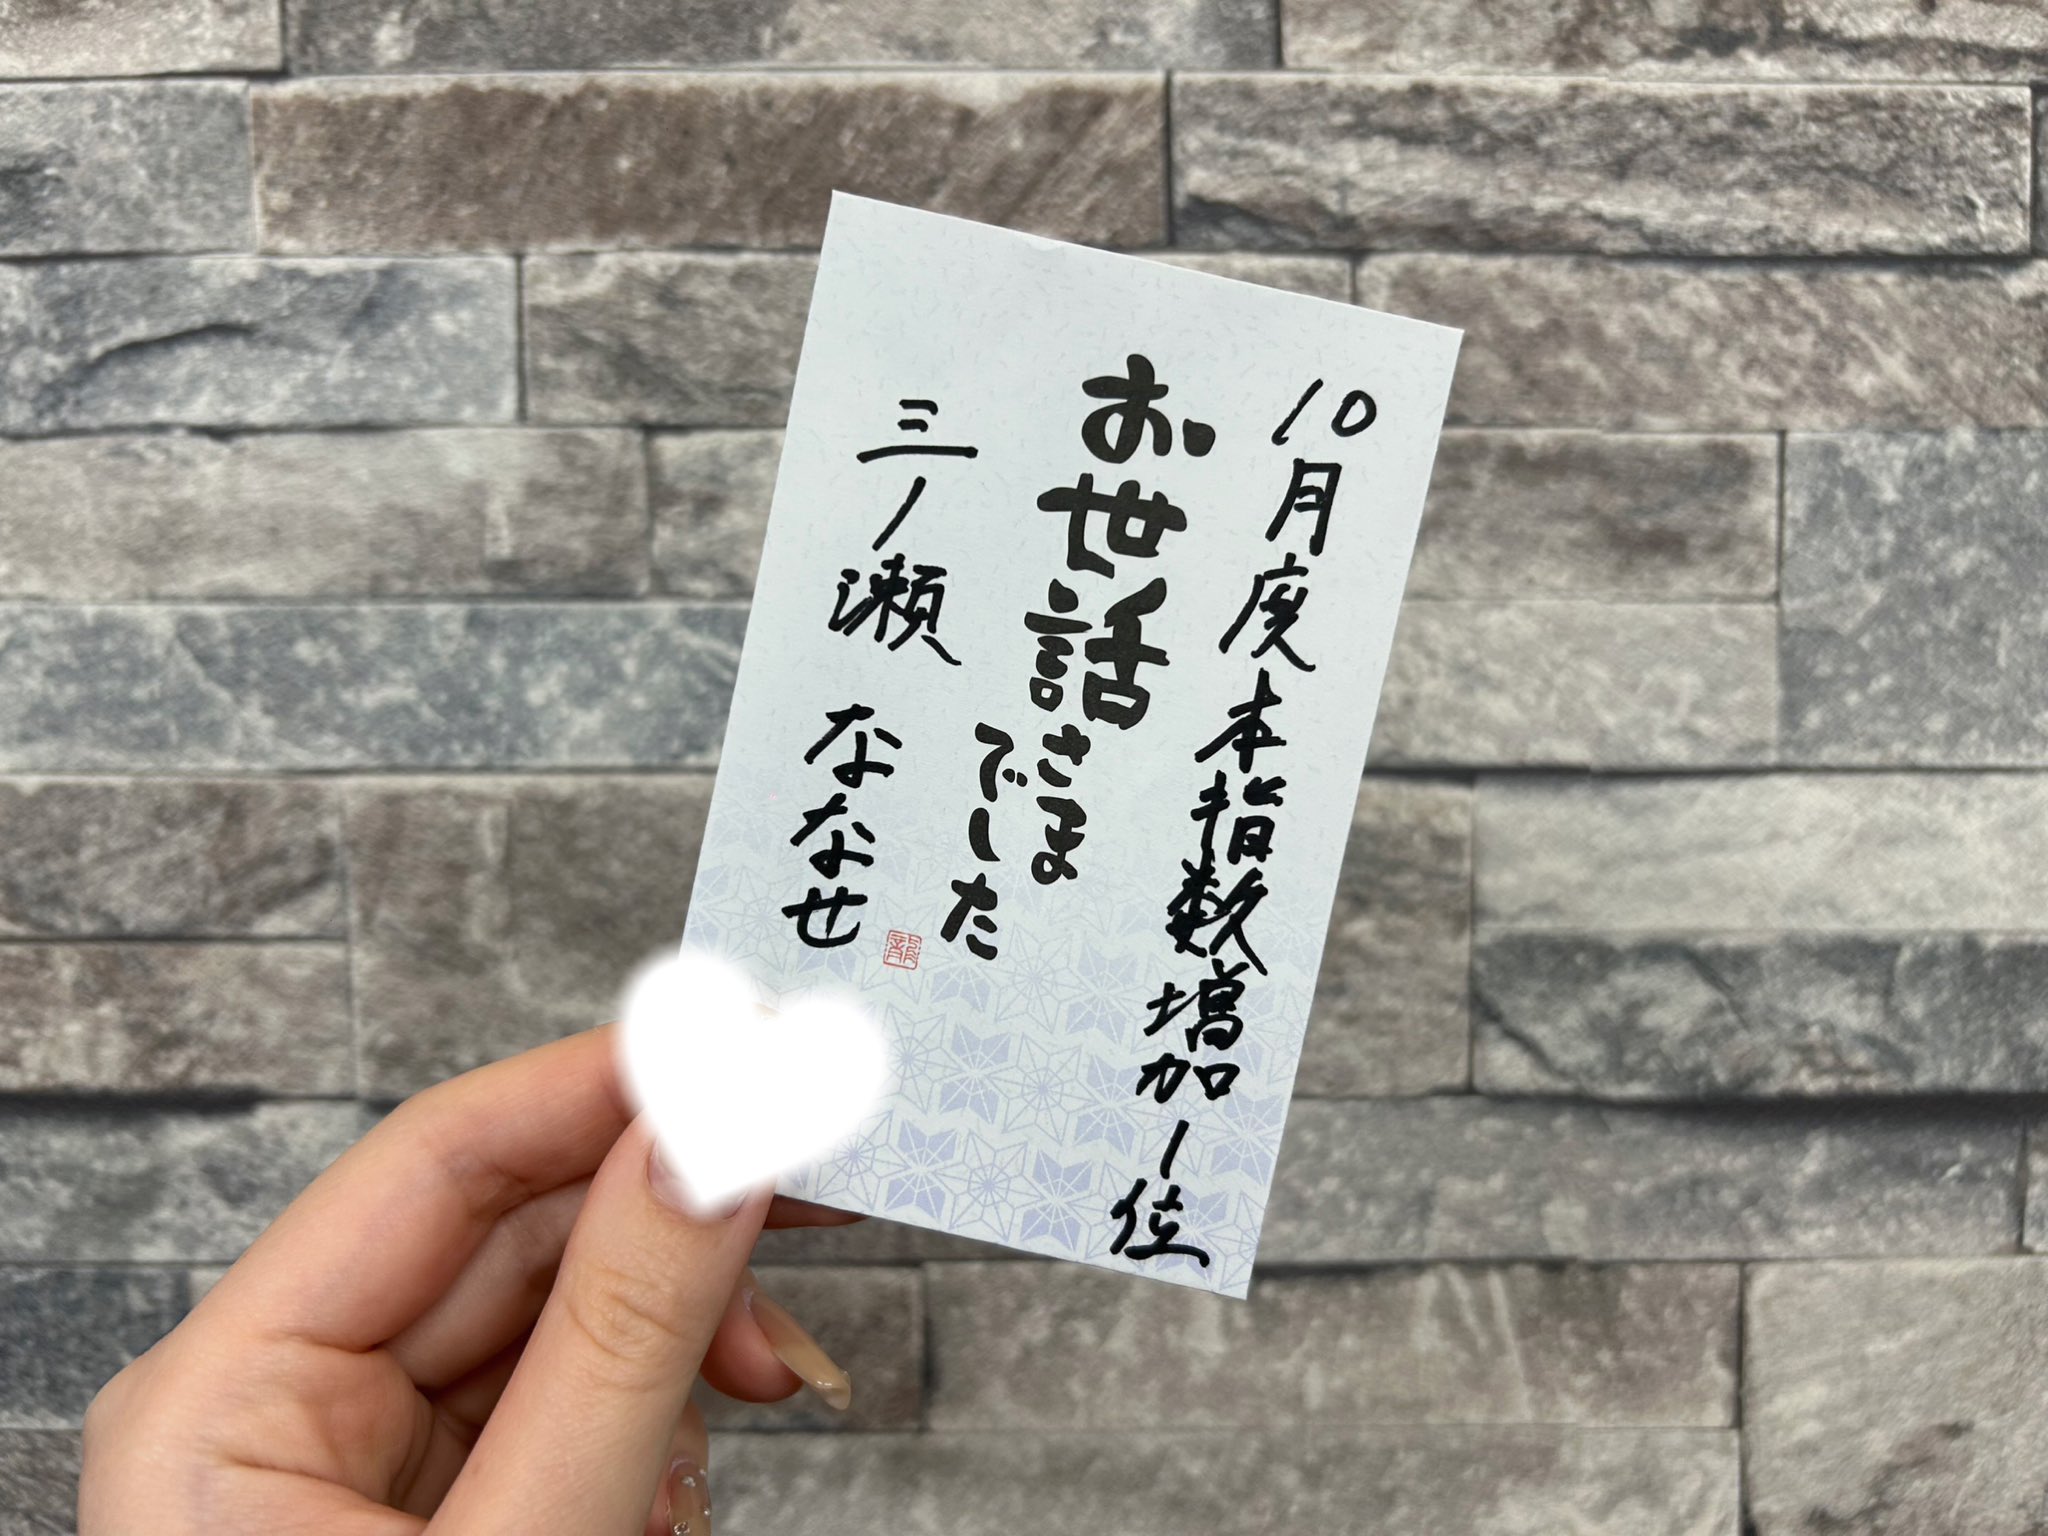 10月度本指数増加1位
お世話さま
でした
三ノ瀬 ななせ